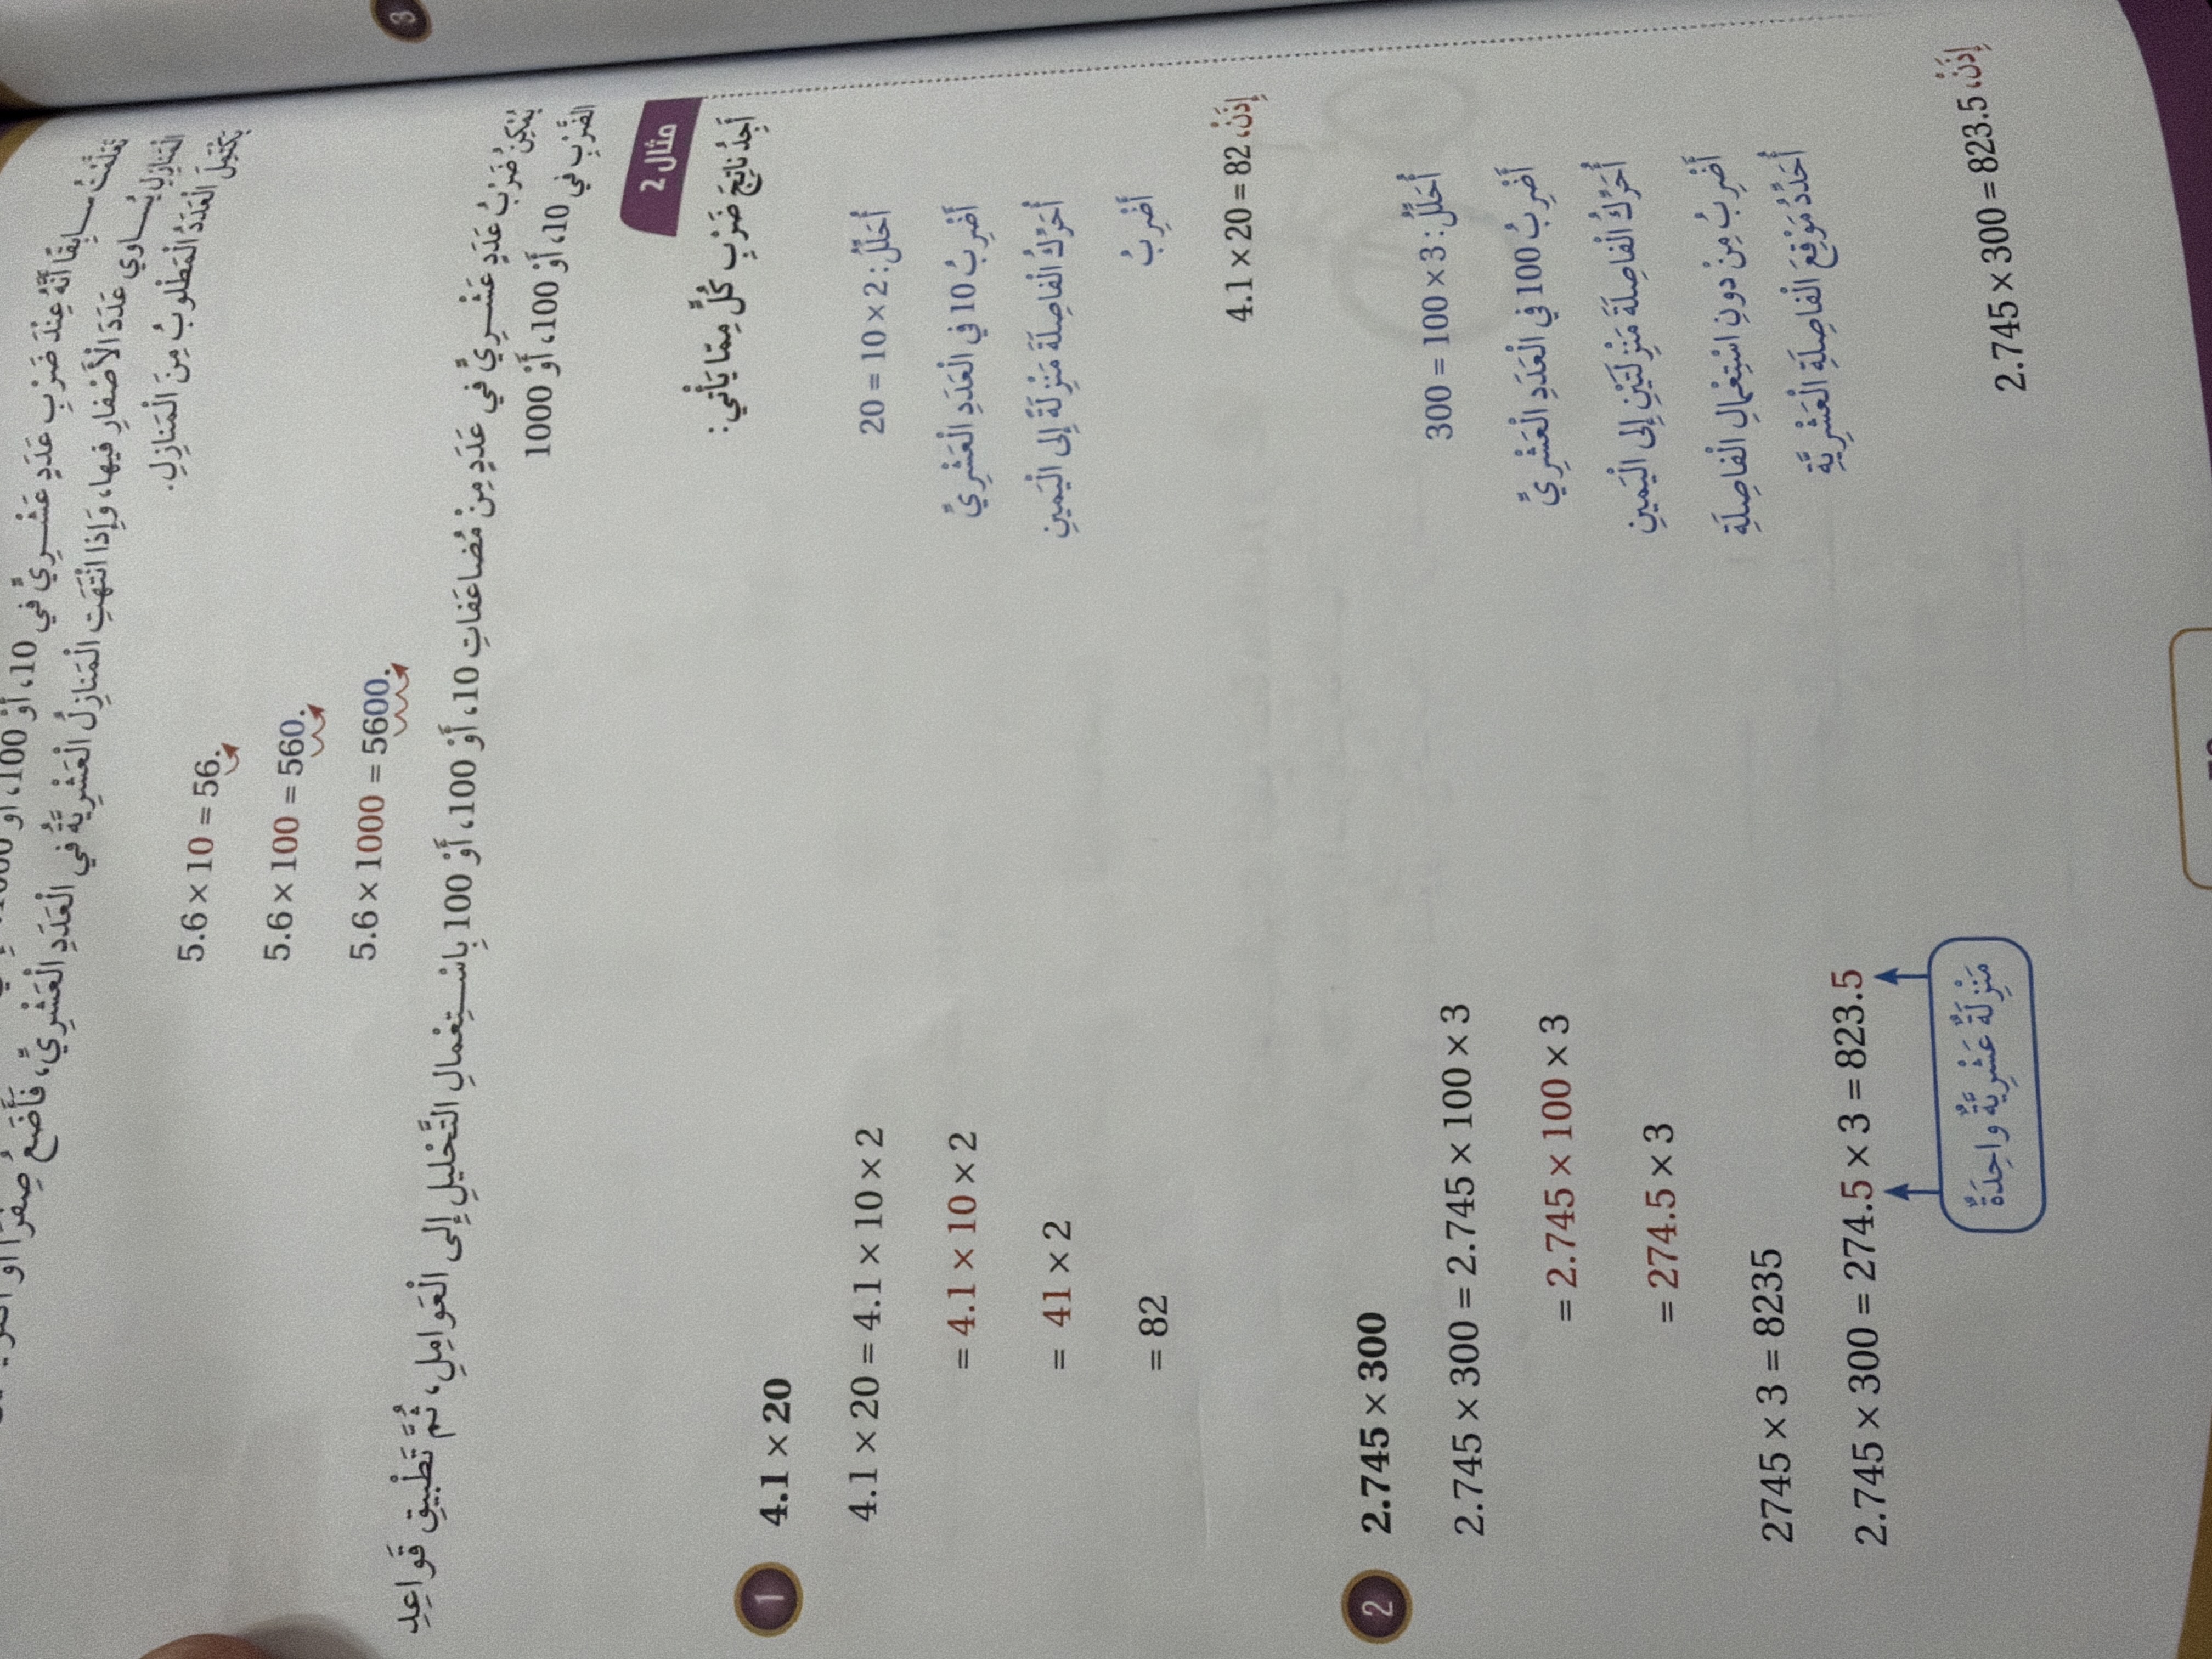 تَعَلَّمْتُ سابِقًا أَنَّهُ عِنْدَ ضَرْبِ عَدَدٍ عَشْرِيٍّ في 10، أَوْ 100، أَوْ 1000
الْمَنازِلِ يُساوي عَدَدَ الْأَصْفارِ فيها، وَإِذا انْتَهَتِ الْمَنازِلُ الْعَشْرِيَّةُ في الْعَدَدِ الْعَشْرِيِّ، فَأَضَعُ صِفْرًا أَوْ
يَكْتَمِلَ الْعَدَدُ الْمَطْلوبُ مِنَ الْمَنازِلِ.
5.6 × 10 = 56.
5.6 × 100 = 560.
5.6 × 1000 = 5600.
يُمْكِنُ ضَرْبُ عَدَدٍ عَشْرِيٍّ في عَدَدٍ مِنْ مُضاعَفاتِ 10، أَوْ 100، أَوْ 100 بِاسْتِعْمالِ التَّحْليلِ إِلى الْعَوامِلِ، ثُمَّ تَطْبيقِ قَواعِدِ
الضَّرْبِ في 10، أَوْ 100، أَوْ 1000
مثال 2
أَجِدُ ناتِجَ ضَرْبِ كُلٍّ مِمّا يَأْتي:
1 4.1 × 20
4.1 × 20 = 4.1 × 10 × 2 أُحَلِّلُ: 20 = 10 × 2
= 4.1 × 10 × 2 أَضْرِبُ 10 في الْعَدَدِ الْعَشْرِيِّ
= 41 × 2 أُحَرِّكُ الْفاصِلَةَ مَنْزِلَةً إِلى الْيَمينِ
= 82 أَضْرِبُ
إِذَنْ، 4.1 × 20 = 82
2 2.745 × 300
2.745 × 300 = 2.745 × 100 × 3 أُحَلِّلُ: 300 = 100 × 3
= 2.745 × 100 × 3 أَضْرِبُ 100 في الْعَدَدِ الْعَشْرِيِّ
= 274.5 × 3 أُحَرِّكُ الْفاصِلَةَ مَنْزِلَتَيْنِ إِلى الْيَمينِ
2745 × 3 = 8235 أَضْرِبُ مِنْ دونِ اسْتِعْمالِ الْفاصِلَةِ
2.745 × 300 = 274.5 × 3 = 823.5 أُحَدِّدُ مَوْقِعَ الْفاصِلَةِ الْعَشْرِيَّةِ
مَنْزِلَةٌ عَشْرِيَّةٌ واحِدَةٌ
إِذَنْ، 2.745 × 300 = 823.5
3